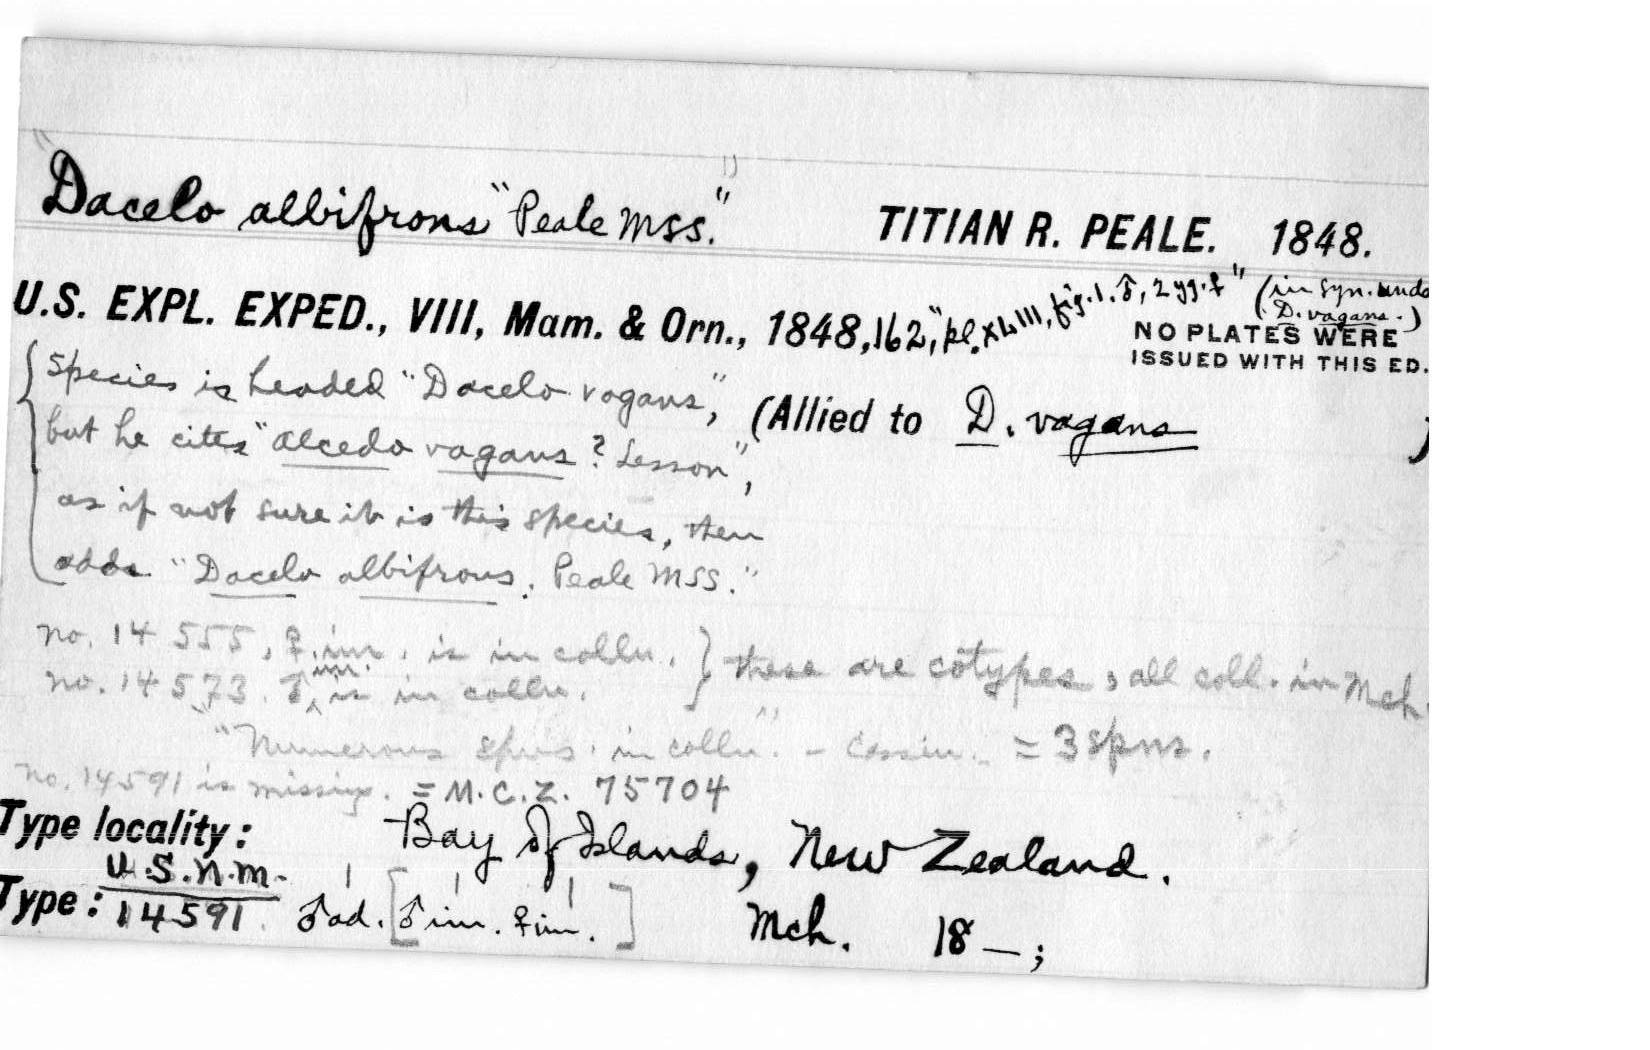 Dacelo albifrons "Peale MSS." TITIAN R. PEALE. 1848.
U.S. EXPL. EXPED., VIII, Mam. & Orn., 1848, 162, "pl. XLIII, fig. 1. ♂, 2 yg. ♀" (in syn. unde
D. vagans.)
NO PLATES WERE
ISSUED WITH THIS ED.
Species is headed "Dacelo vagans",
(Allied to D. vagans )
but he cites "Alcedo vagans? Lesson",
as if not sure it is this species, then
adds "Dacelo albifrons. Peale MSS."
no. 14555, ♀ im. is in colln. } these are cotypes, all coll. in Mch.
no. 14573. ♂ im. is in colln.
"Numerous spns. in colln". - Cassin. = 3 spns.
no. 14591 is missing. = M.C.Z. 75704
Type locality: Bay of Islands, New Zealand.
Type: U.S.N.M. 14591. ♂ ad. [♂ im. ♀ im.] Mch. 18—;